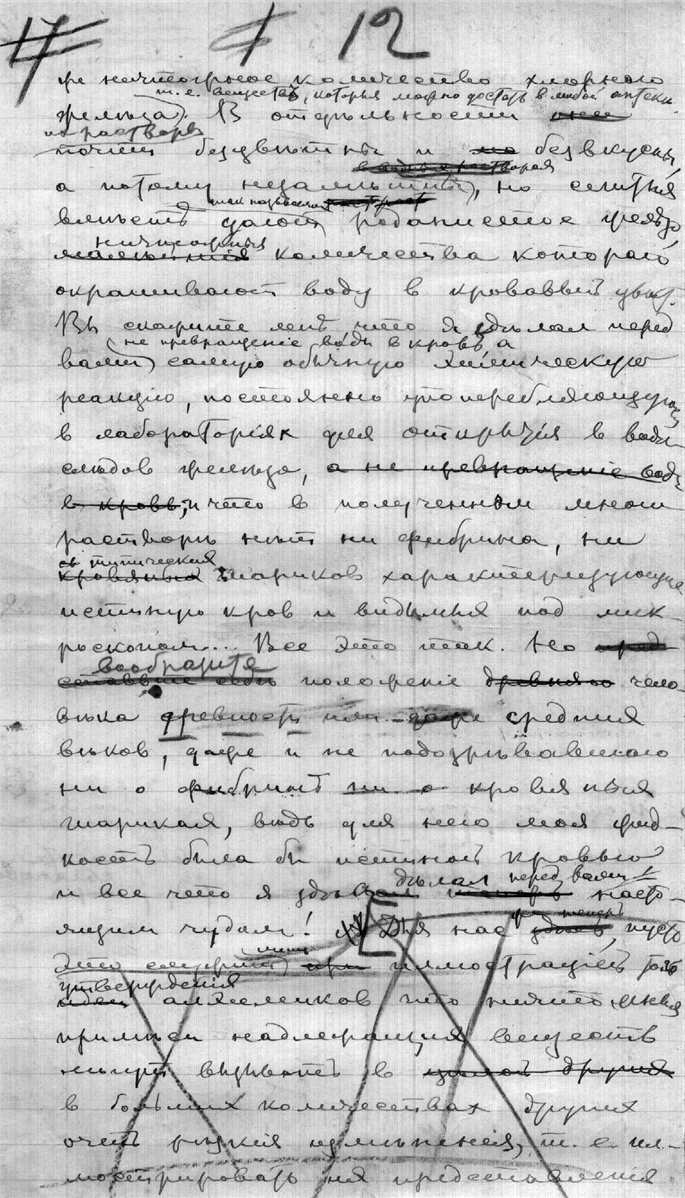 17 12
же ничтожное количество хлорного
т. е. вещества, которыя можно достать в любой аптеке
железа). В отдельности они
их растворы
почти безцветны и безвкусны,
в воде растворяя
а потому незаметны, но слитыя
так называемое
вместе дают роданистое железо,
ничтожныя
малейшия количества котораго
окрашивают воду в кроваввый цвет.
Вы скажите мне что я сделал перед
не превращение воды в кровь а
вами самую обычную химическую
реакцию, постоянно употребляющуюся
в лабораториях для открытия в воде
следов железа, а не превращение воды
в кровь, и что в полученном мною
растворе нет ни фибрина, ни
тех типических
кровяных шариков характеризующие
истинную кров и видимыя под мик-
роскопом... Все это так. Но пред-
вообразите
ставьте себе положение древняго чело-
века древности или даже средних
веков, даже и не подозревавшаго
ни о фибрине ни о кровяных
шариках, ведь для него моя жид-
кость была бы истинной кровью
делал перед вами
и все что я сделал теперь насто-
ящим чудом! Для нас здесь, пусть
это служит лишь при иллюстрацией
утверждения
идеи алхемиков что ничтожныя
примеси надлежащих веществ
могут вызывать в целых других
в больших количествах других
очень резкия изменения, т. е. ил-
люстрировать их представления